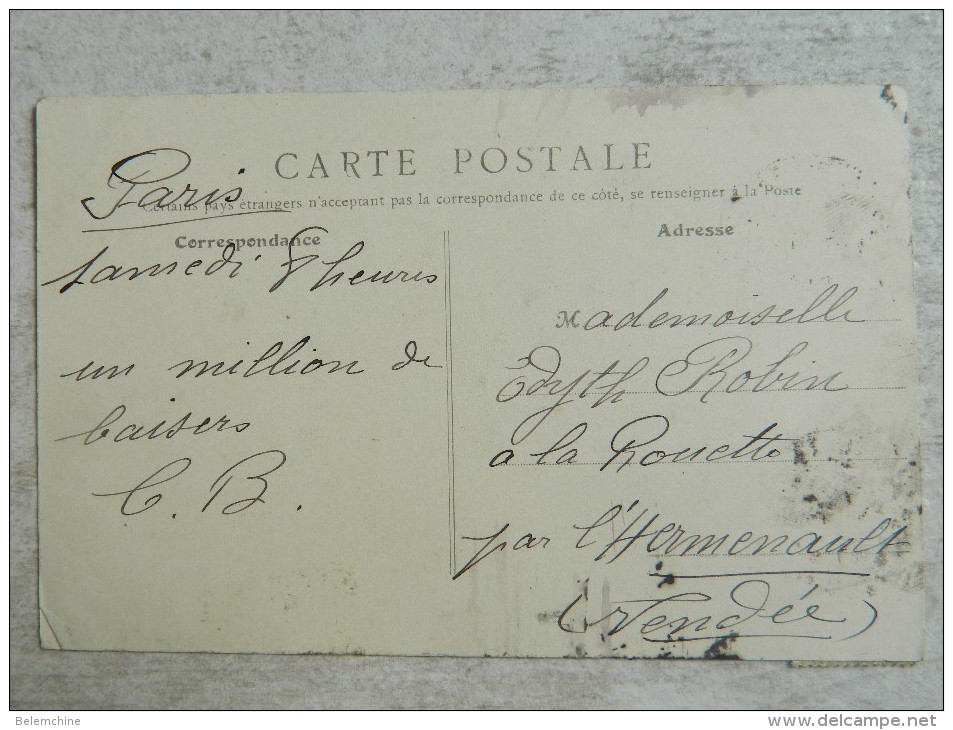 CARTE POSTALE
Certains pays étrangers n'acceptant pas la correspondance de ce côté, se renseigner à la Poste
Correspondance
Paris
samedi 8 heures
un million de
baisers
C. B.
Adresse
Mademoiselle
Edyth Robin
a la Rouette
par l'Hermenault
(Vendée)
Belemchine
www.delcampe.net